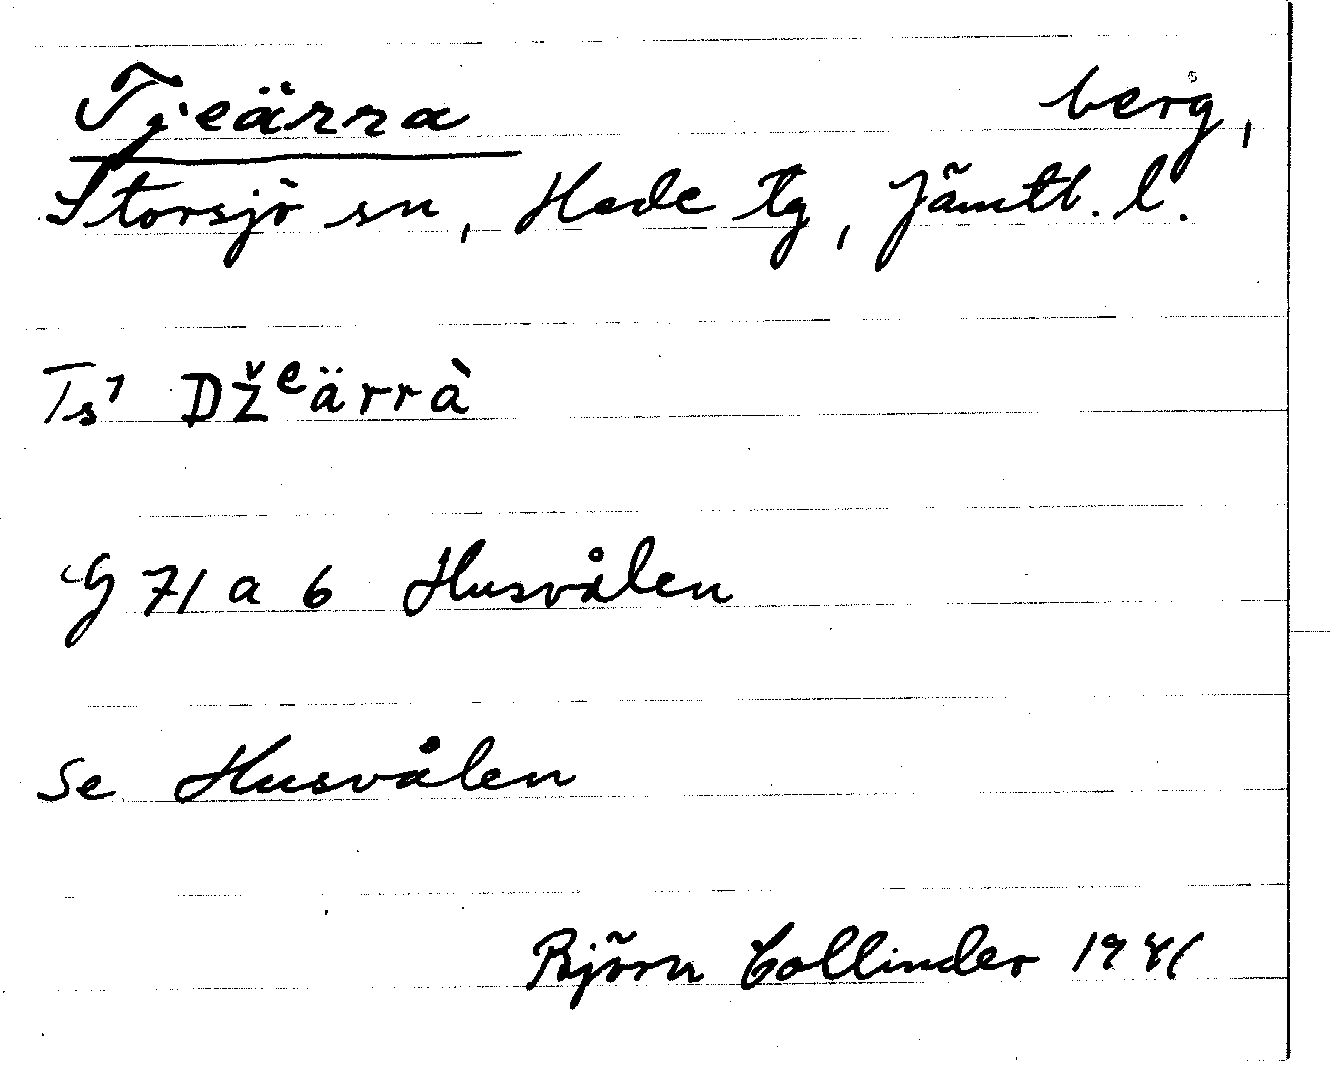 Tjeärra berg,
Storsjö sn, Hede tg, Jämtl. l.
Ts¹ Džᵉärrà
G 71 a 6 Husvålen
Se Husvålen
Björn Collinder 1981